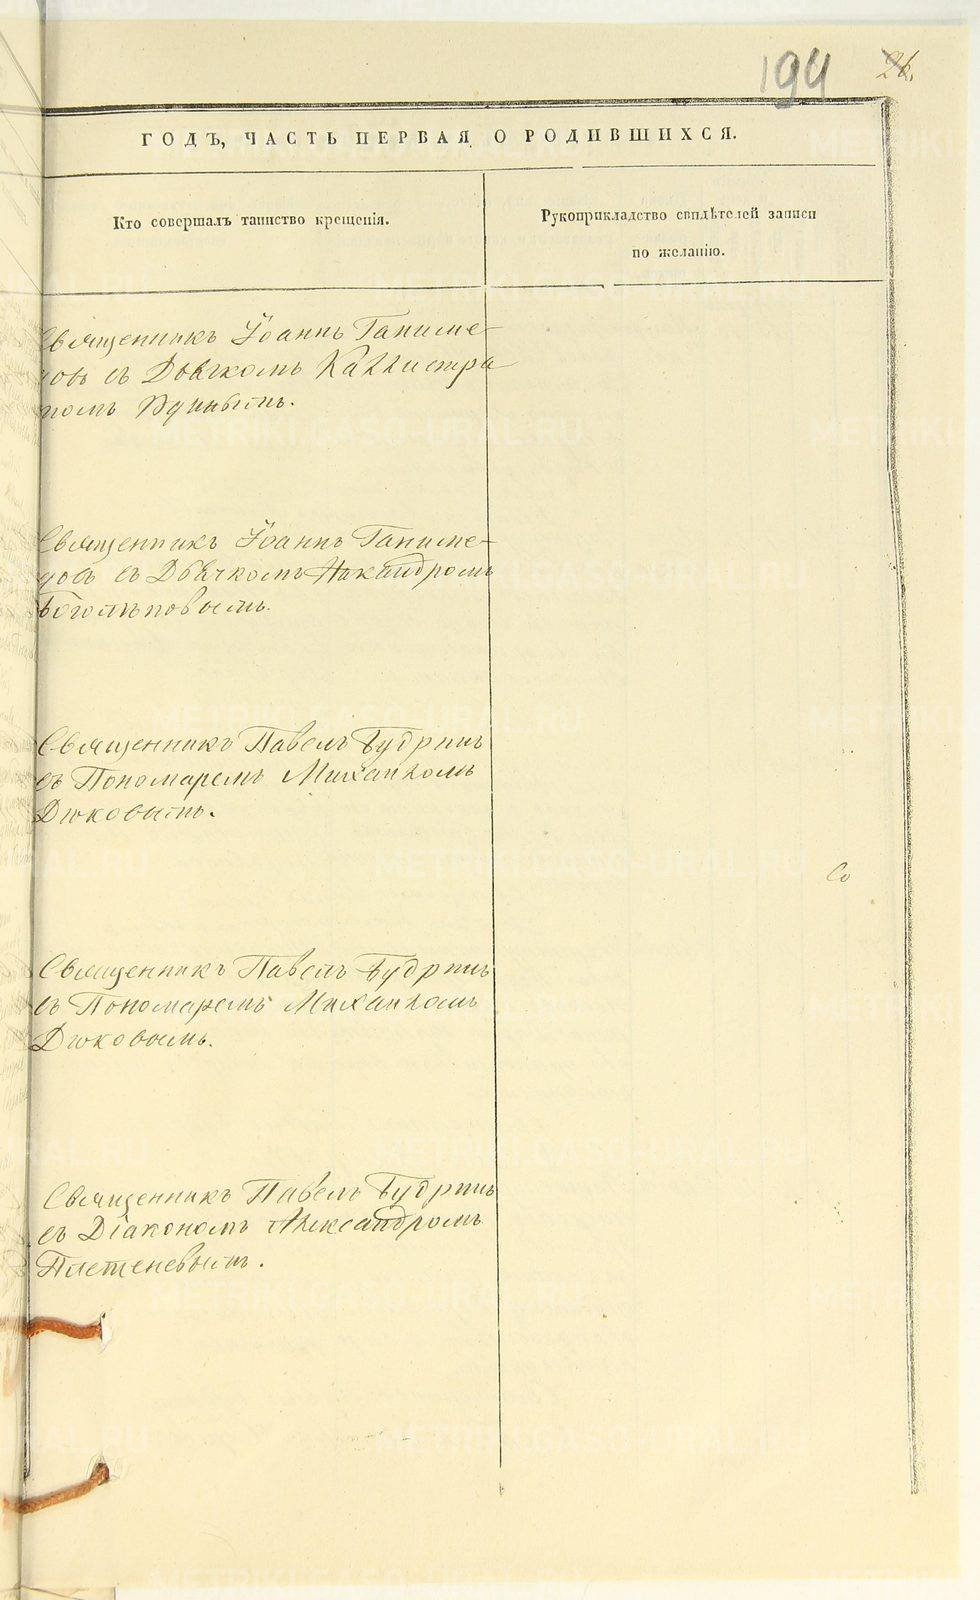 194 26.
ГОДЪ, ЧАСТЬ ПЕРВАЯ О РОДИВШИХСЯ.
Кто совершалъ таинство крещенія.
Рукоприкладство свидѣтелей записи
по желанію.
Священникъ Іоаннъ Ганиме-
довъ съ Дьячкомъ Каллистра
томъ
Священникъ Іоаннъ Ганиме-
довъ съ Дьячкомъ Никандромъ
Боголѣповымъ.
Священникъ Павелъ Будринъ
съ Пономаремъ Михаиломъ
Дюковымъ.
Со
Священникъ Павелъ Будринъ
съ Пономаремъ Михаиломъ
Дюковымъ.
Священникъ Павелъ Будринъ
съ Діакономъ Александромъ
Плетеневымъ.
METRIKI.GASO-URAL.RU